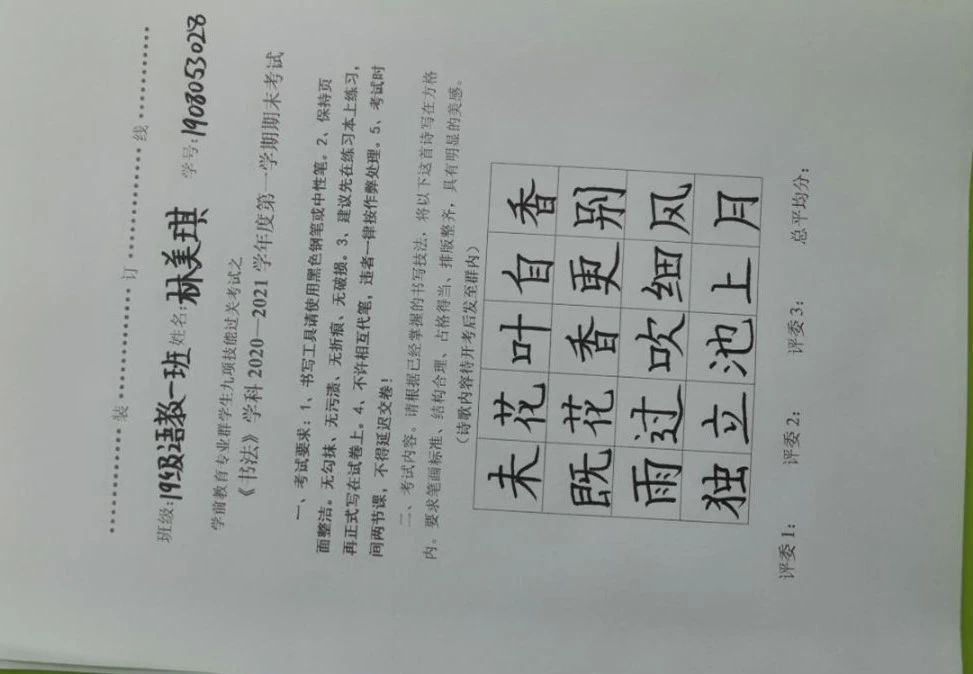 装 订 线
班级:19级语教一班 姓名:林美琪 学号:1908053028
学前教育专业群学生九项技能过关考试之
《书法》学科2020—2021学年度第一学期期末考试
一、考试要求：1、书写工具请使用黑色钢笔或中性笔。2、保持页
面整洁。无勾抹、无污渍、无折痕、无破损。3、建议先在练习本上练习，
再正式写在试卷上。4、不许相互代笔，违者一律按作弊处理。5、考试时
间两节课，不得延迟交卷！
二、考试内容。请根据已经掌握的书写技法，将以下这首诗写在方格
内。要求笔画标准、结构合理、占格得当、排版整齐，具有明显的美感。
（诗歌内容待开考后发至群内）
未花叶自香
既花香更别
雨过吹细风
独立池上月
评委1： 评委2： 评委3： 总平均分：